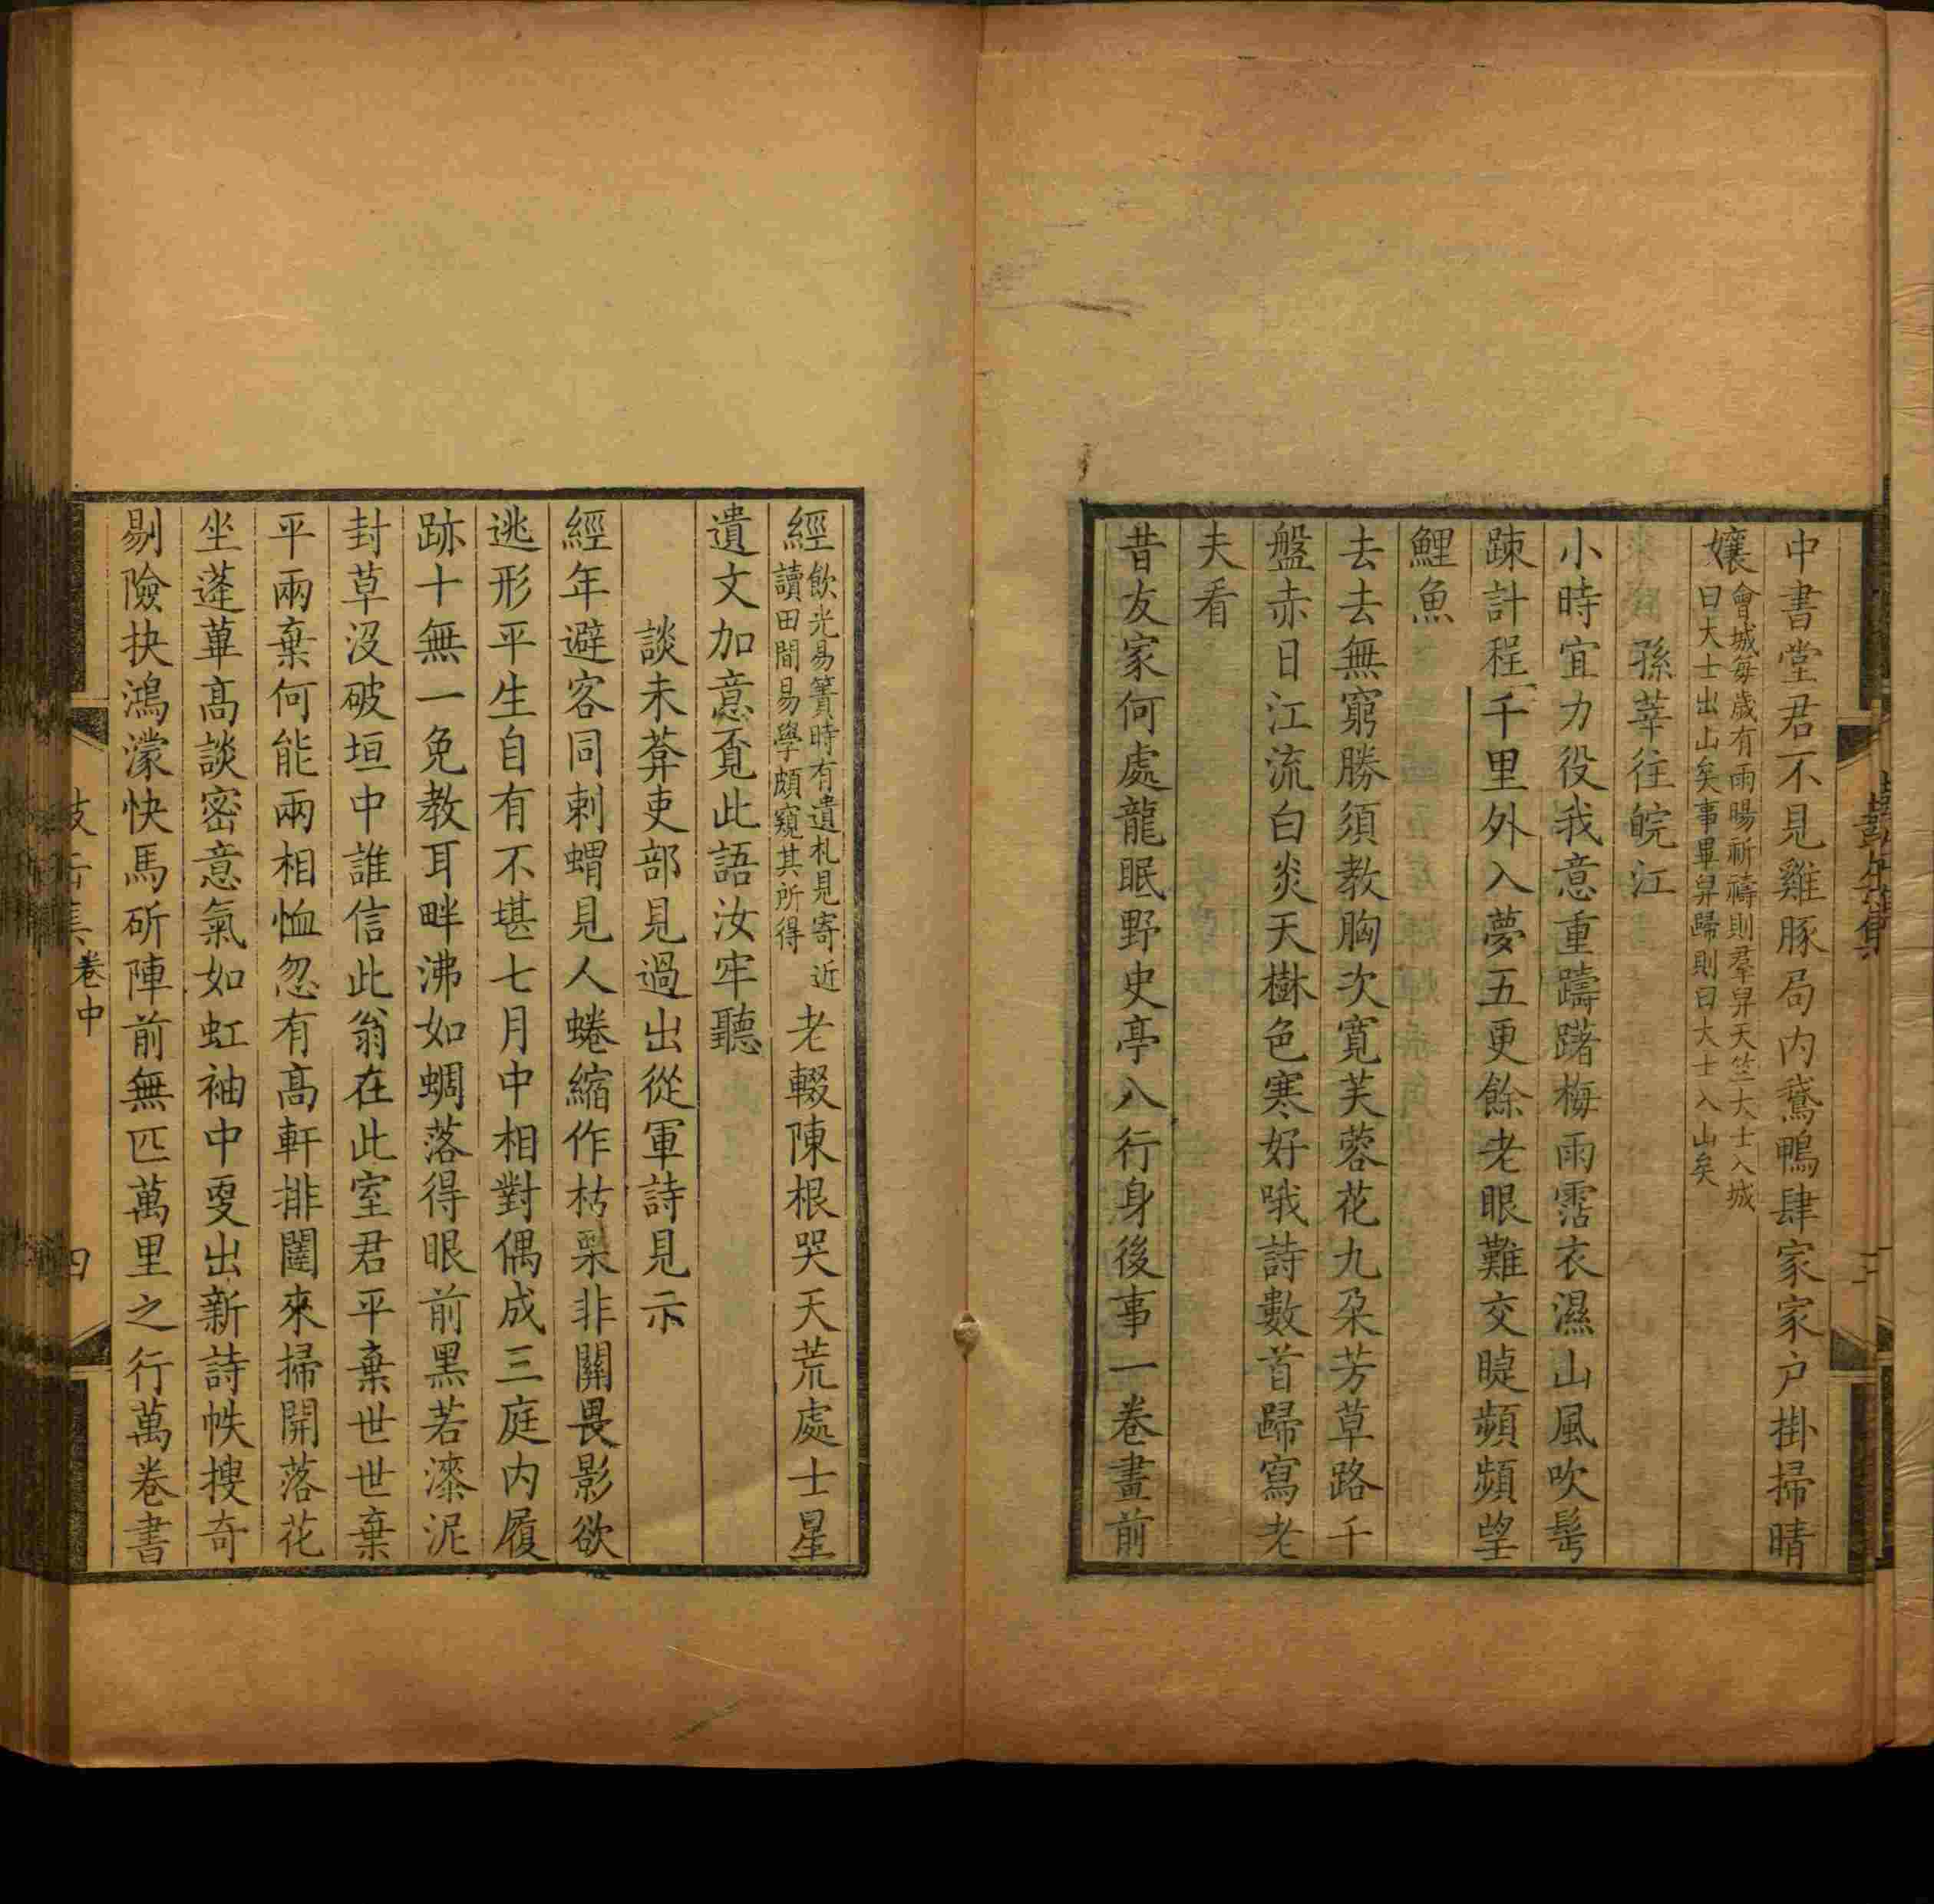 中書堂君不見雞豚局内鵞鴨肆家家户掛掃晴
孃會城每歲有雨暘祈禱則羣舁天竺大士入城
曰大士出山矣事畢舁歸則曰大士入山矣
孫莘往皖江
小時宜力役我意重躊躇梅雨霑衣濕山風吹髩
疎計程千里外入夢五更餘老眼難交睫頻頻望
鯉魚
去去無窮勝須教胸次寬芙蓉花九朶芳草路千
盤赤日江流白炎天樹色寒好哦詩數首歸寫老
夫看
昔友家何處龍眠野史亭八行身後事一卷畫前
經飲光易簀時有遺札見寄近
讀田間易學頗窺其所得
老輟陳根哭天荒處士星
遺文加意覔此語汝牢聽
談未莽吏部見過出從軍詩見示
經年避客同剌蝟見人蜷縮作枯栗非關畏影欲
逃形平生自有不堪七月中相對偶成三庭内履
跡十無一免教耳畔沸如蜩落得眼前黑若漆泥
封草沒破垣中誰信此翁在此室君平棄世世棄
平兩棄何能兩相恤忽有高軒排闥來掃開落花
坐蓬蓽高談密意氣如虹袖中叓出新詩帙搜奇
剔險抉鴻濛快馬斫陣前無匹萬里之行萬卷書
卷中
四